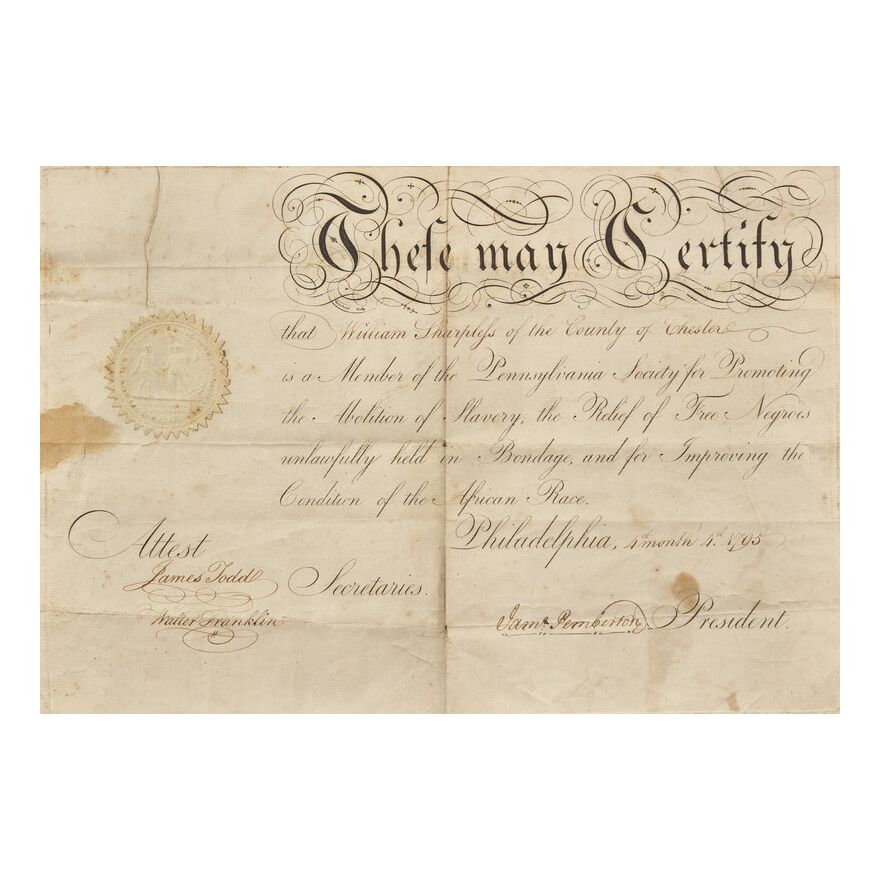 These may Certify
that William Sharpless of the County of Chester
is a Member of the Pennsylvania Society for Promoting
the Abolition of Slavery, the Relief of Free Negroes
unlawfully held in Bondage, and for Improving the
Condition of the African Race.
Philadelphia, 4th month 4th 1795
Attest
James Todd
Walter Franklin
Secretaries.
Jams. Pemberton President.